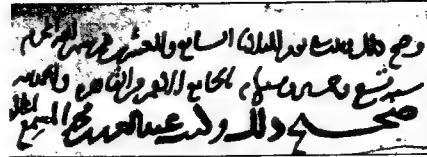 وصح ذلك وثبت يوم الثلاثاء السابع والعشرين من شهر المحرم
سنة تسع وخمسين وستمائة بالجامع الأزهر والقاهرة والحمد لله
صحيح ذلك وكتب عبد العزيز بن عبد المنعم